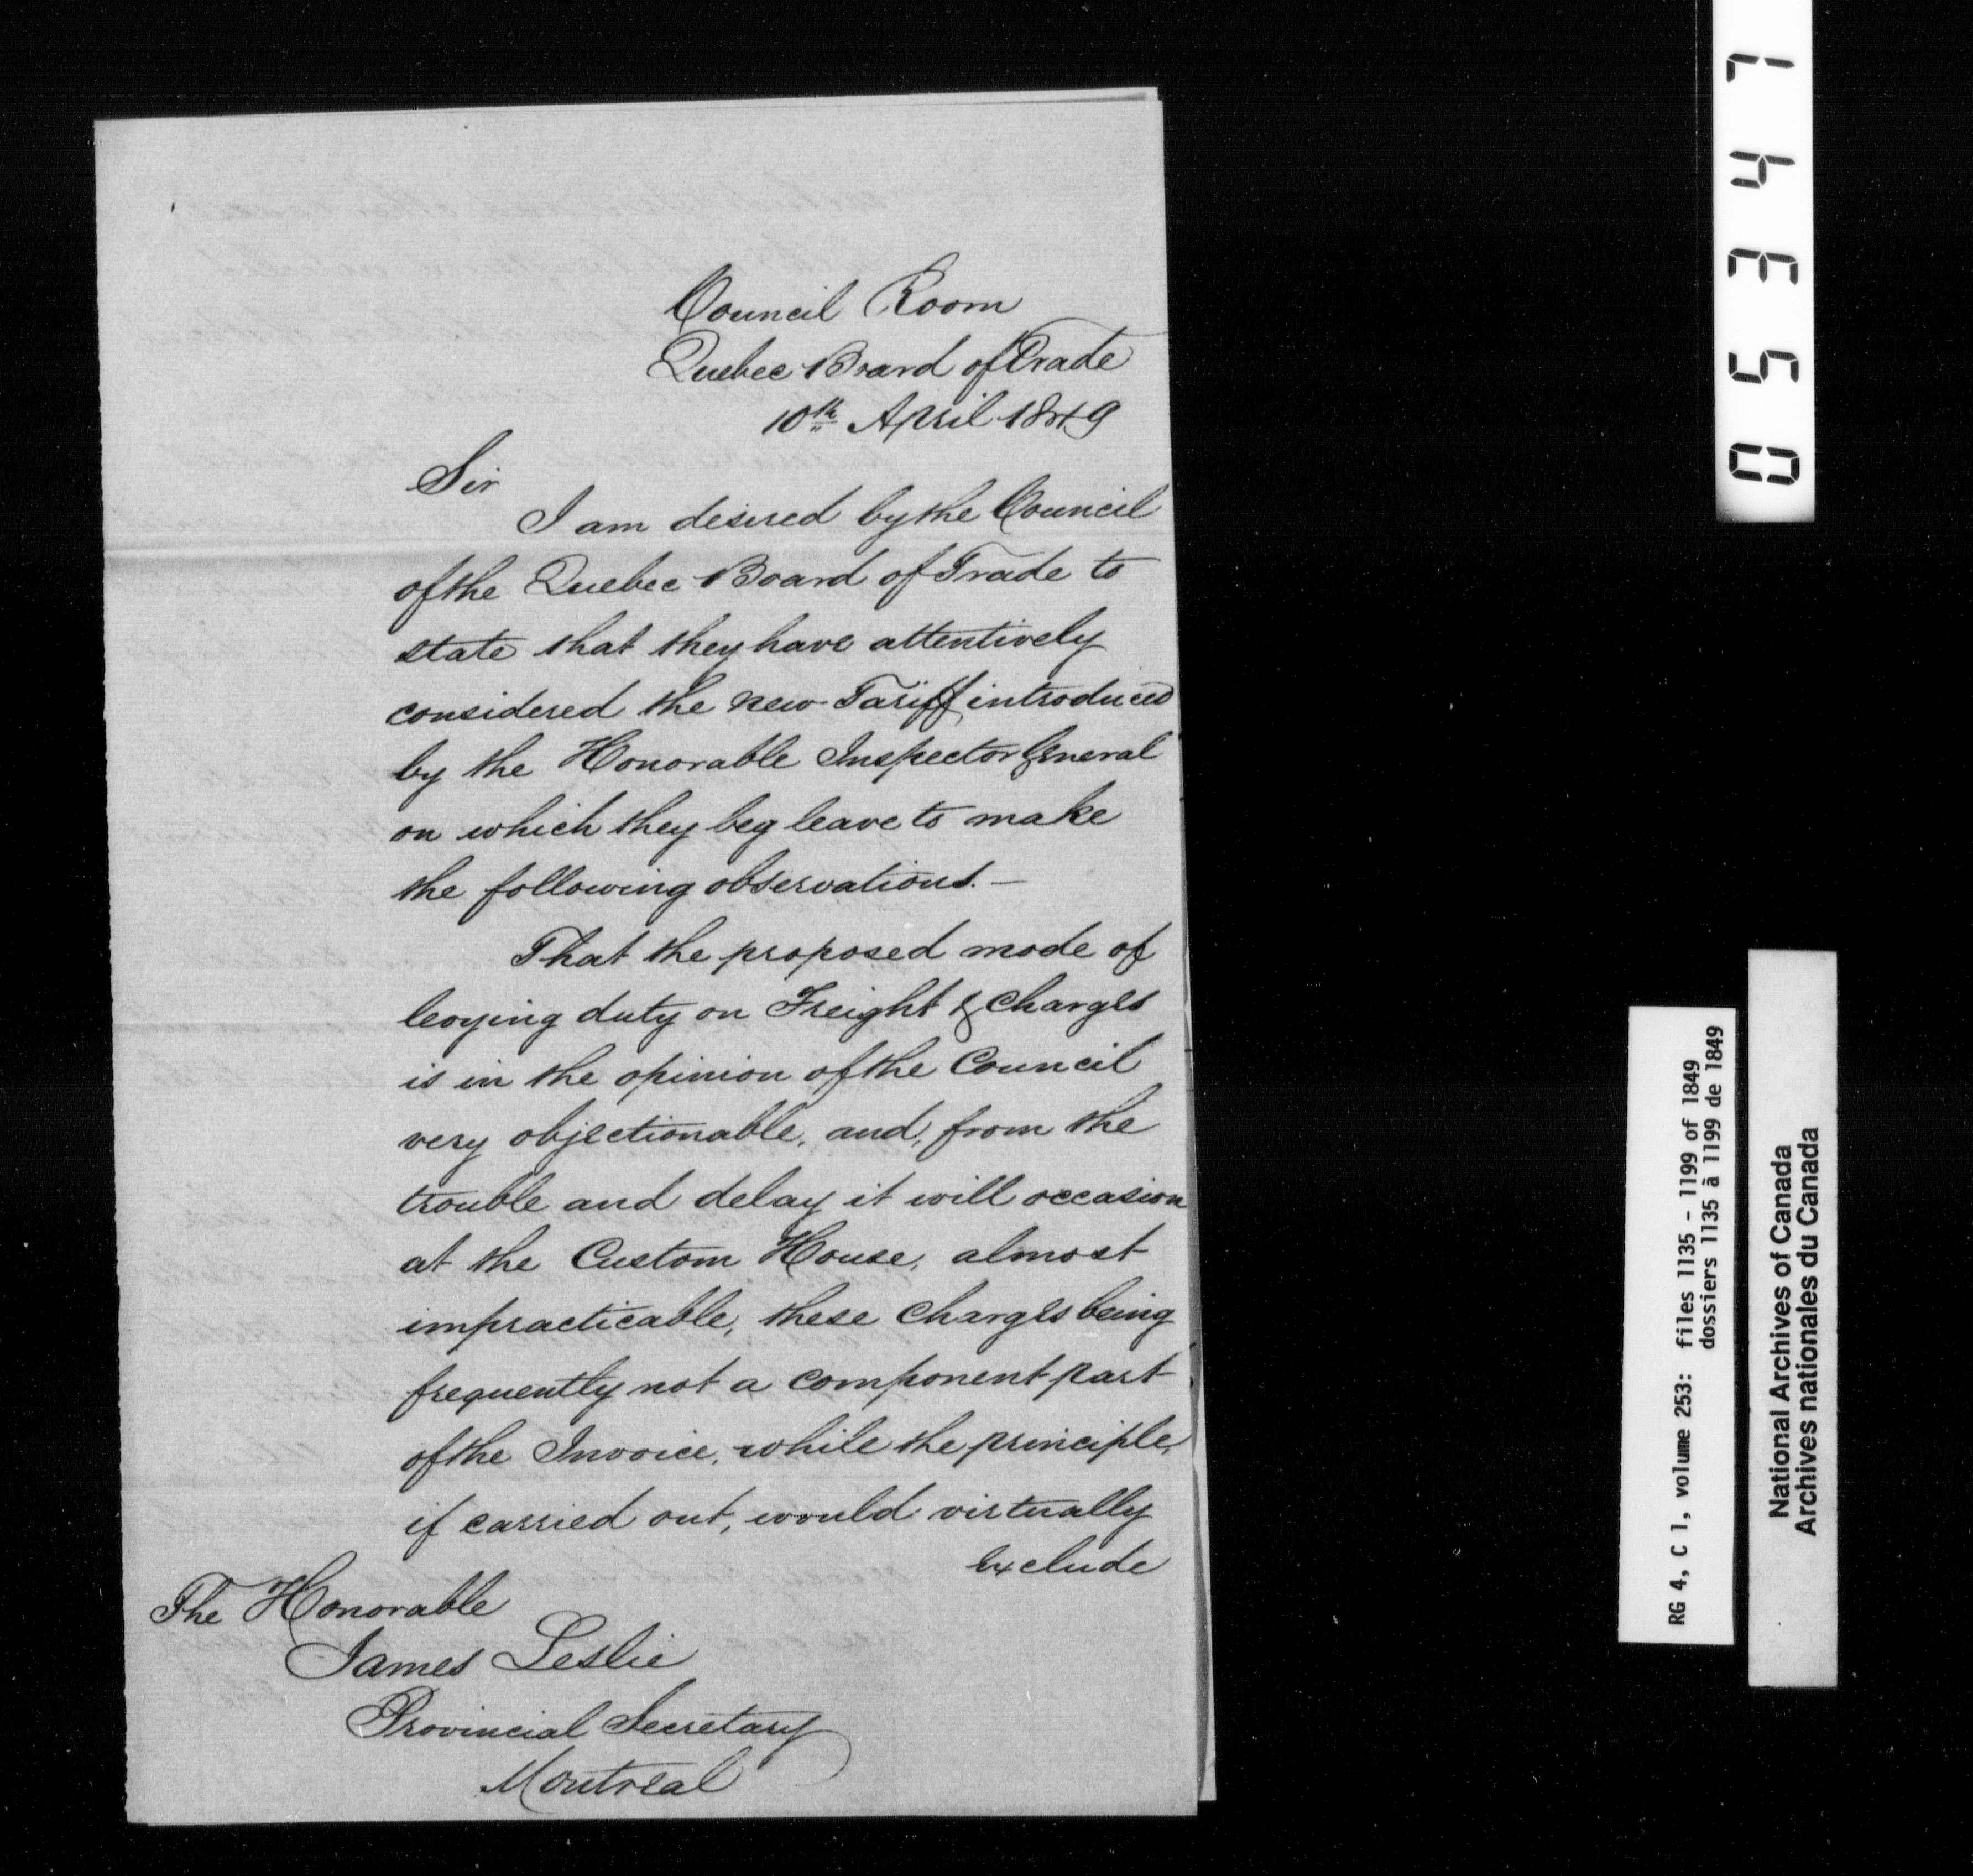 Council Room
Quebec Board of Trade
10th April 1849
Sir
I am desired by the Council
of the Quebec Board of Trade to
state that they have attentively
considered the new Tariff introduced
by the Honorable Inspector General
on which they beg leave to make
the following observations. —
That the proposed mode of
levying duty on Freight & Charges
is in the opinion of the Council
very objectionable, and, from the
trouble and delay it will occasion
at the Custom House, almost
impracticable, these Charges being
frequently not a component part
of the Invoice, while the principle,
if carried out, would virtually
exclude
The Honorable
James Leslie
Provincial Secretary
Montreal
05347
RG 4, C 1, volume 253: files 1135 - 1199 of 1849
dossiers 1135 à 1199 de 1849
National Archives of Canada
Archives nationales du Canada